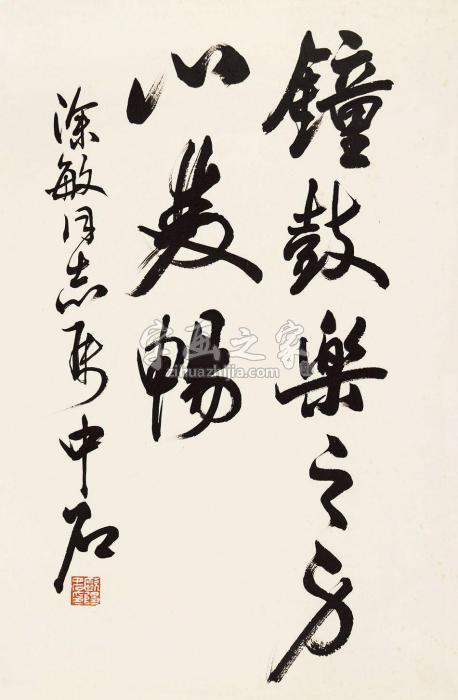 鐘鼓樂之方
心暢
涂敏同志屬中石
字画之家
zihuazhijia.com